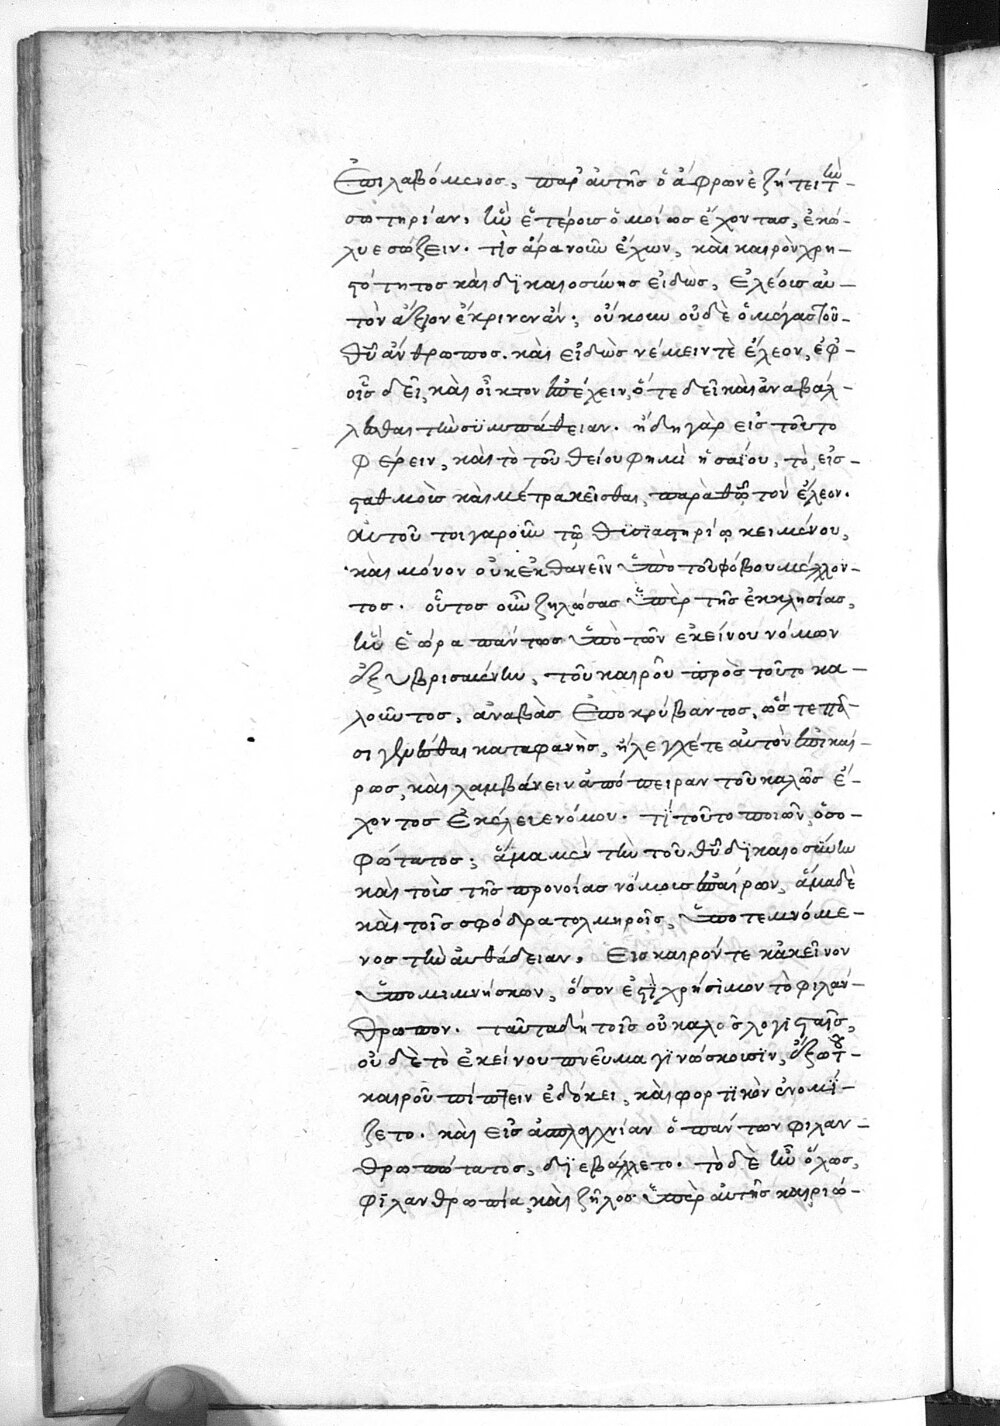 ἐπιλαβόμενος, παρ' αὐτῆς ὁ ἄφρων ἐζήτει τὴν
σωτηρίαν, ἣν ἑτέροις ὁμοίως ἔχοντας, ἐκώ-
λυε σώζειν. τίς ἄρα νοῦν ἔχων, καὶ καιρὸν χρη-
στότητος καὶ δικαιοσύνης εἰδὼς, ἐλέοις αὐ-
τὸν ἄξιον ἔκρινεν ἄν; οὔκουν οὐδὲ ὁ μέγας τοῦ
θῦ ἄνθρωπος. καὶ εἰδὼς νέμειν τὲ ἔλεον, ἐφ'
οἷς δεῖ, καὶ οἶκτον ἐπέχειν, ὅτε δεῖ καὶ ἀναβάλ-
λεσθαι τὴν συμπάθειαν. ἤδη γὰρ εἰς τοῦτο
φέρειν, καὶ τὸ τοῦ θείου φημὶ ἡσαΐου, τὸ, εἰς
σταθμοὺς καὶ μέτρα κεῖσθαι, παρὰ θῶ τὸν ἔλεον.
αὐτοῦ τοιγαροῦν τῶ θυσιαστηρίω κειμένου,
καὶ μόνον οὐκ ἐκθανεῖν ὑπὸ τοῦ φόβου μέλλον-
τος. οὗτος οὖν ζηλώσας ὑπὲρ τῆς ἐκκλησίας,
ἣν ἑώρα πάντως ὑπὸ τῶν ἐκείνου νόμων
ἐξυβρισμένην, τοῦ καιροῦ πρὸς τοῦτο κα-
λοῦντος, ἀναβὰς ἐπ' ὀκρύβαντος, ὥστε πᾶ-
σι γενέσθαι καταφανὴς, ἤλεγχέ τε αὐτὸν ἐπικαί-
ρως, καὶ λαμβάνειν ἀπόπειραν τοῦ καλῶς ἔ-
χοντος ἐκέλευε νόμου. τί τοῦτο ποιῶν, ὁ σο-
φώτατος; ἅμα μὲν τὴν τοῦ θῦ δικαιοσύνην
καὶ τοὺς τῆς προνοίας νόμους ἐπαίρων, ἅμα δὲ
καὶ τοῖς σφόδρα τολμηροῖς, ὑποτεμνόμε-
νος τὴν αὐθάδειαν. εἰς καιρόν τε κἀκεῖνον
ὑπομιμνήσκων, ὅσον ἐστὶ χρήσιμον τὸ φιλάν-
θρωπον. ταῦτα δὴ τοῖς οὐ καλῶς λογισταῖς,
οὐδὲ τὸ ἐκείνου πνεῦμα γινώσκουσιν, ἔξω τοῦ
καιροῦ πίπτειν ἐδόκει, καὶ φορτικὸν ἐνομί-
ζετο. καὶ εἰς ἀσπλαγχνίαν ὁ πάντων φιλαν-
θρωπότατος, διεβάλλετο. τὸ δὲ ἦν ὅλως,
φιλανθρωπία, καὶ ζῆλος ὑπὲρ αὐτῆς καιριώ-